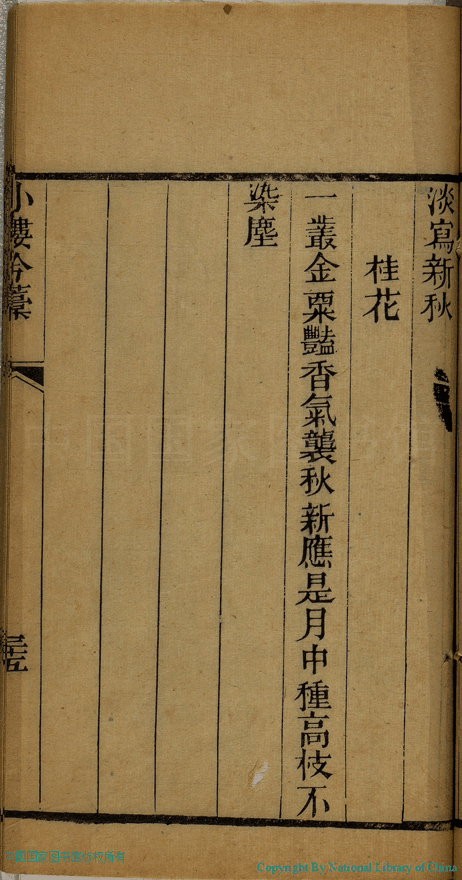 淡寫新秋
桂花
一叢金粟豔香氣襲秋新應是月中種高枝不
染塵
小樓吟藁
三五
中国国家图书馆
Copyright By National Library of China